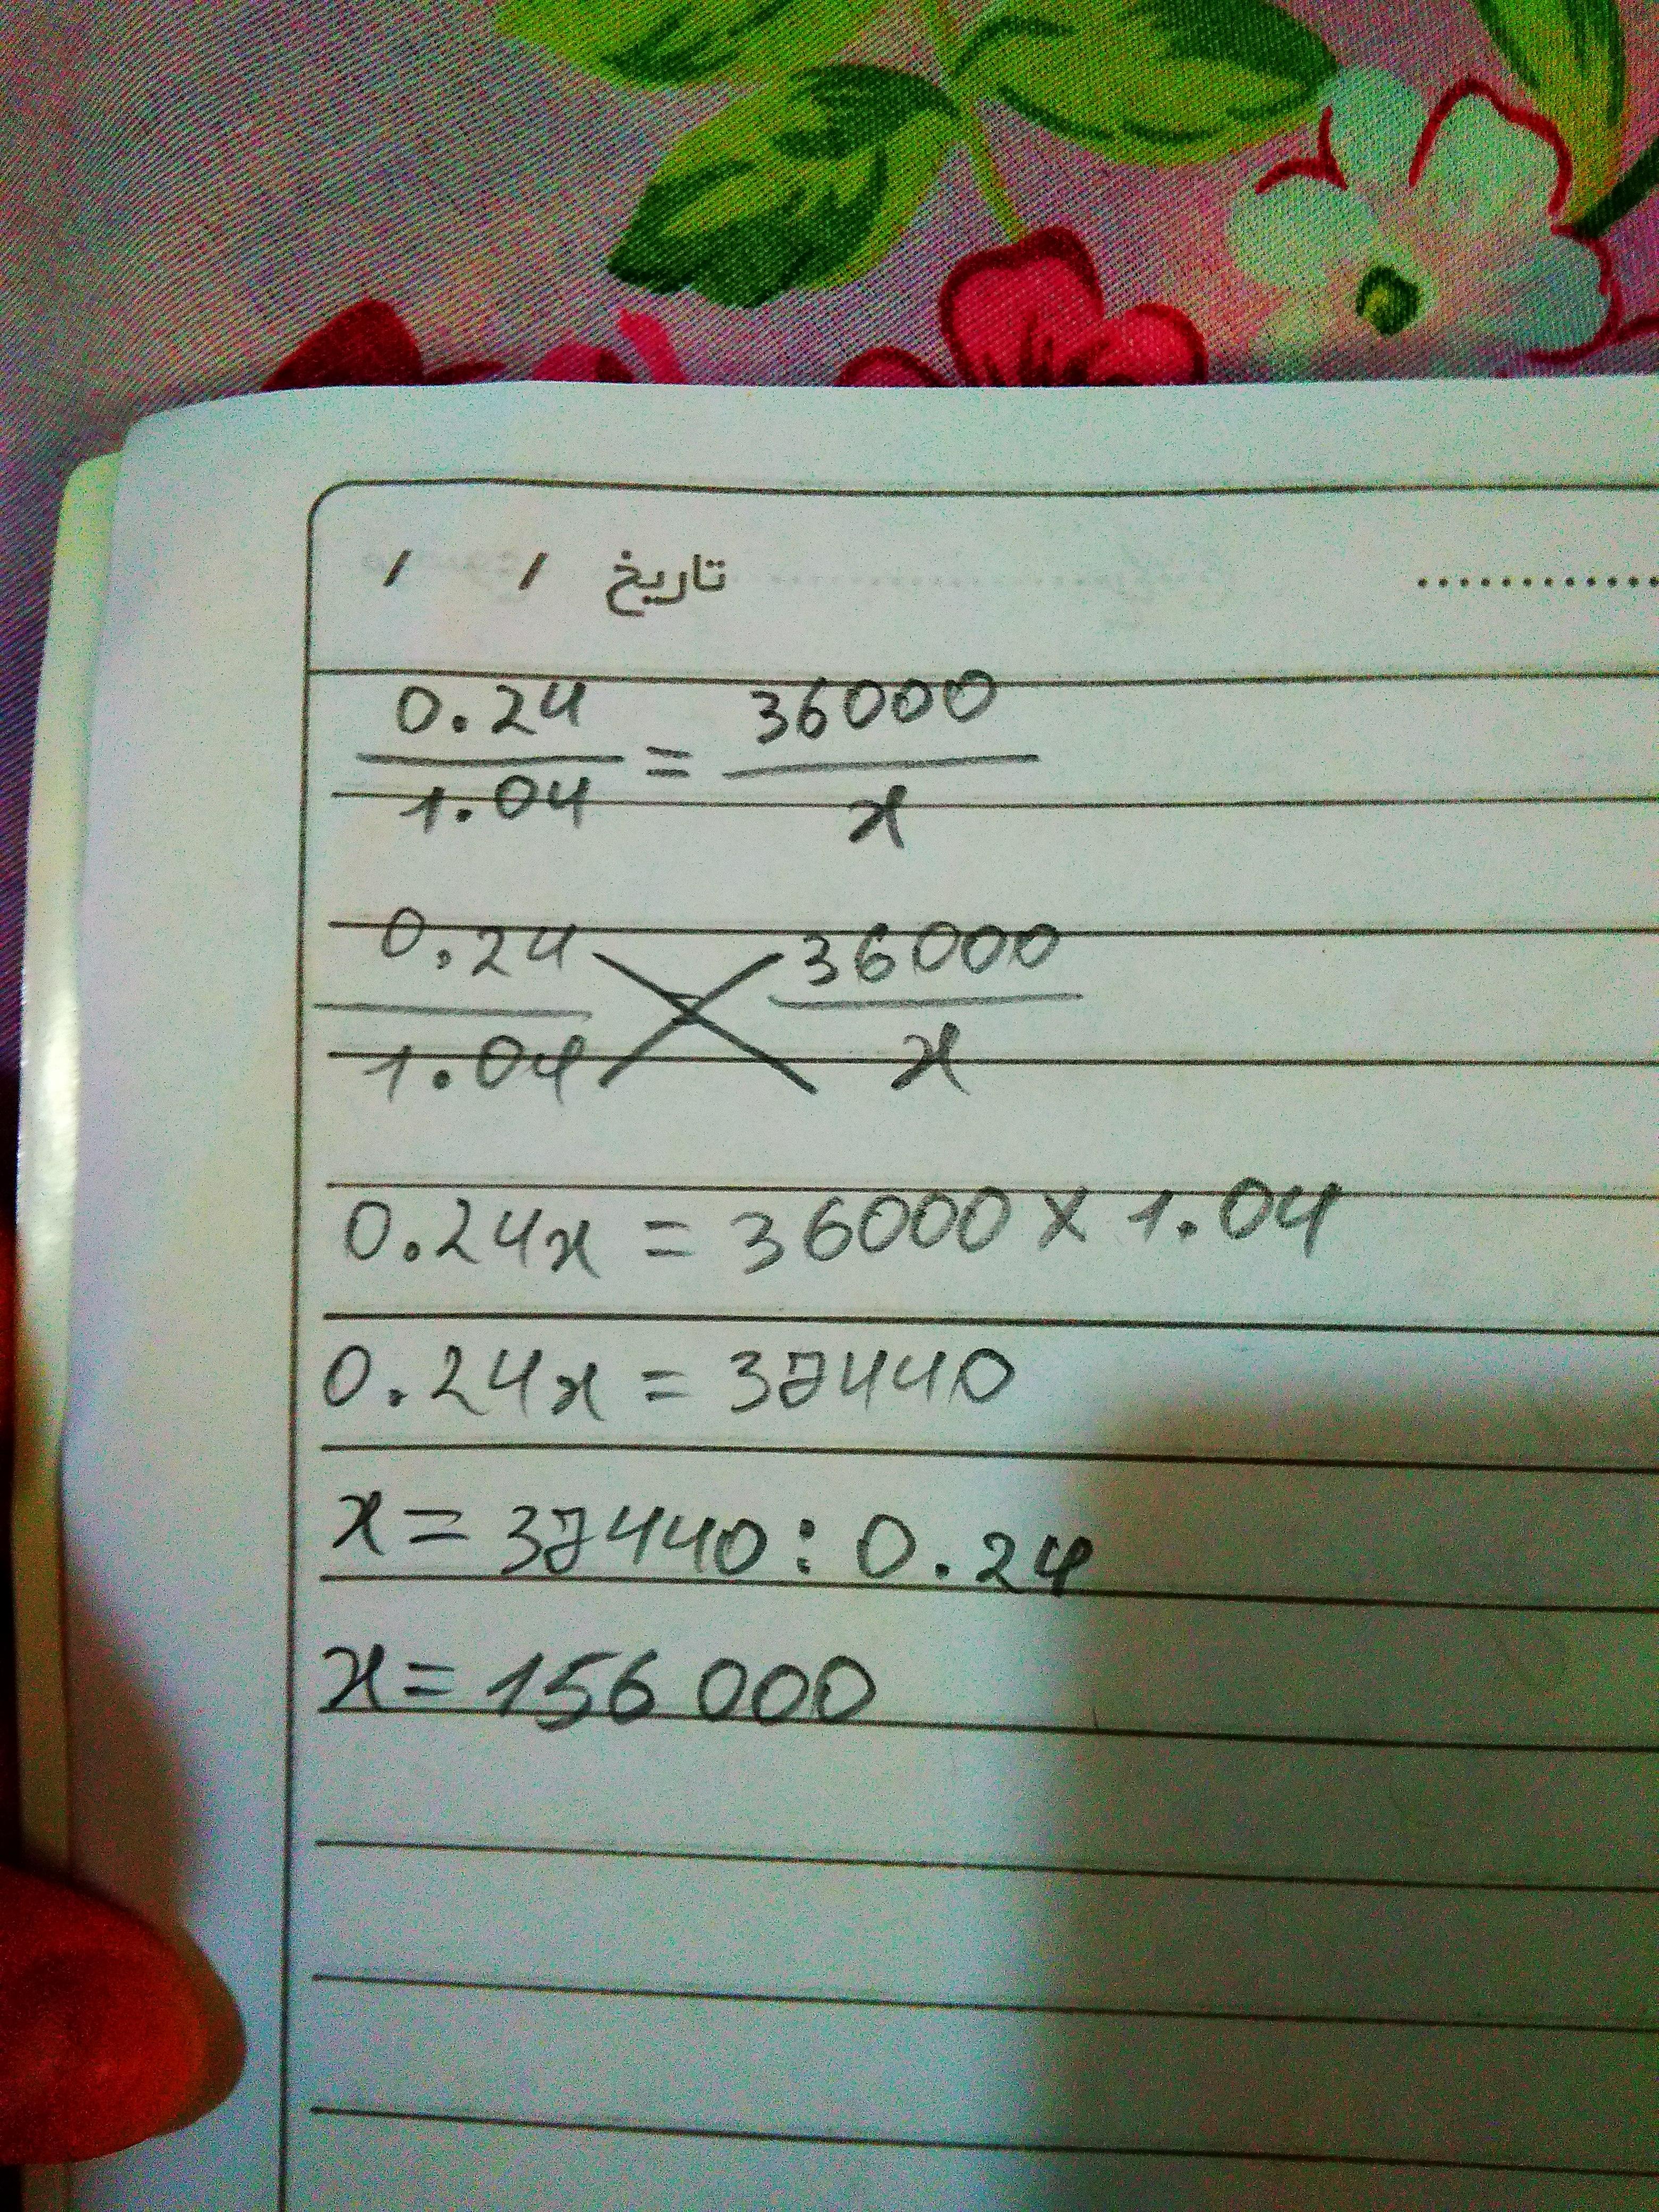 تاريخ / /
0.24/1.04 = 36000/x
0.24/1.04 = 36000/x
0.24x = 36000 × 1.04
0.24x = 37440
x = 37440 : 0.24
x = 156 000